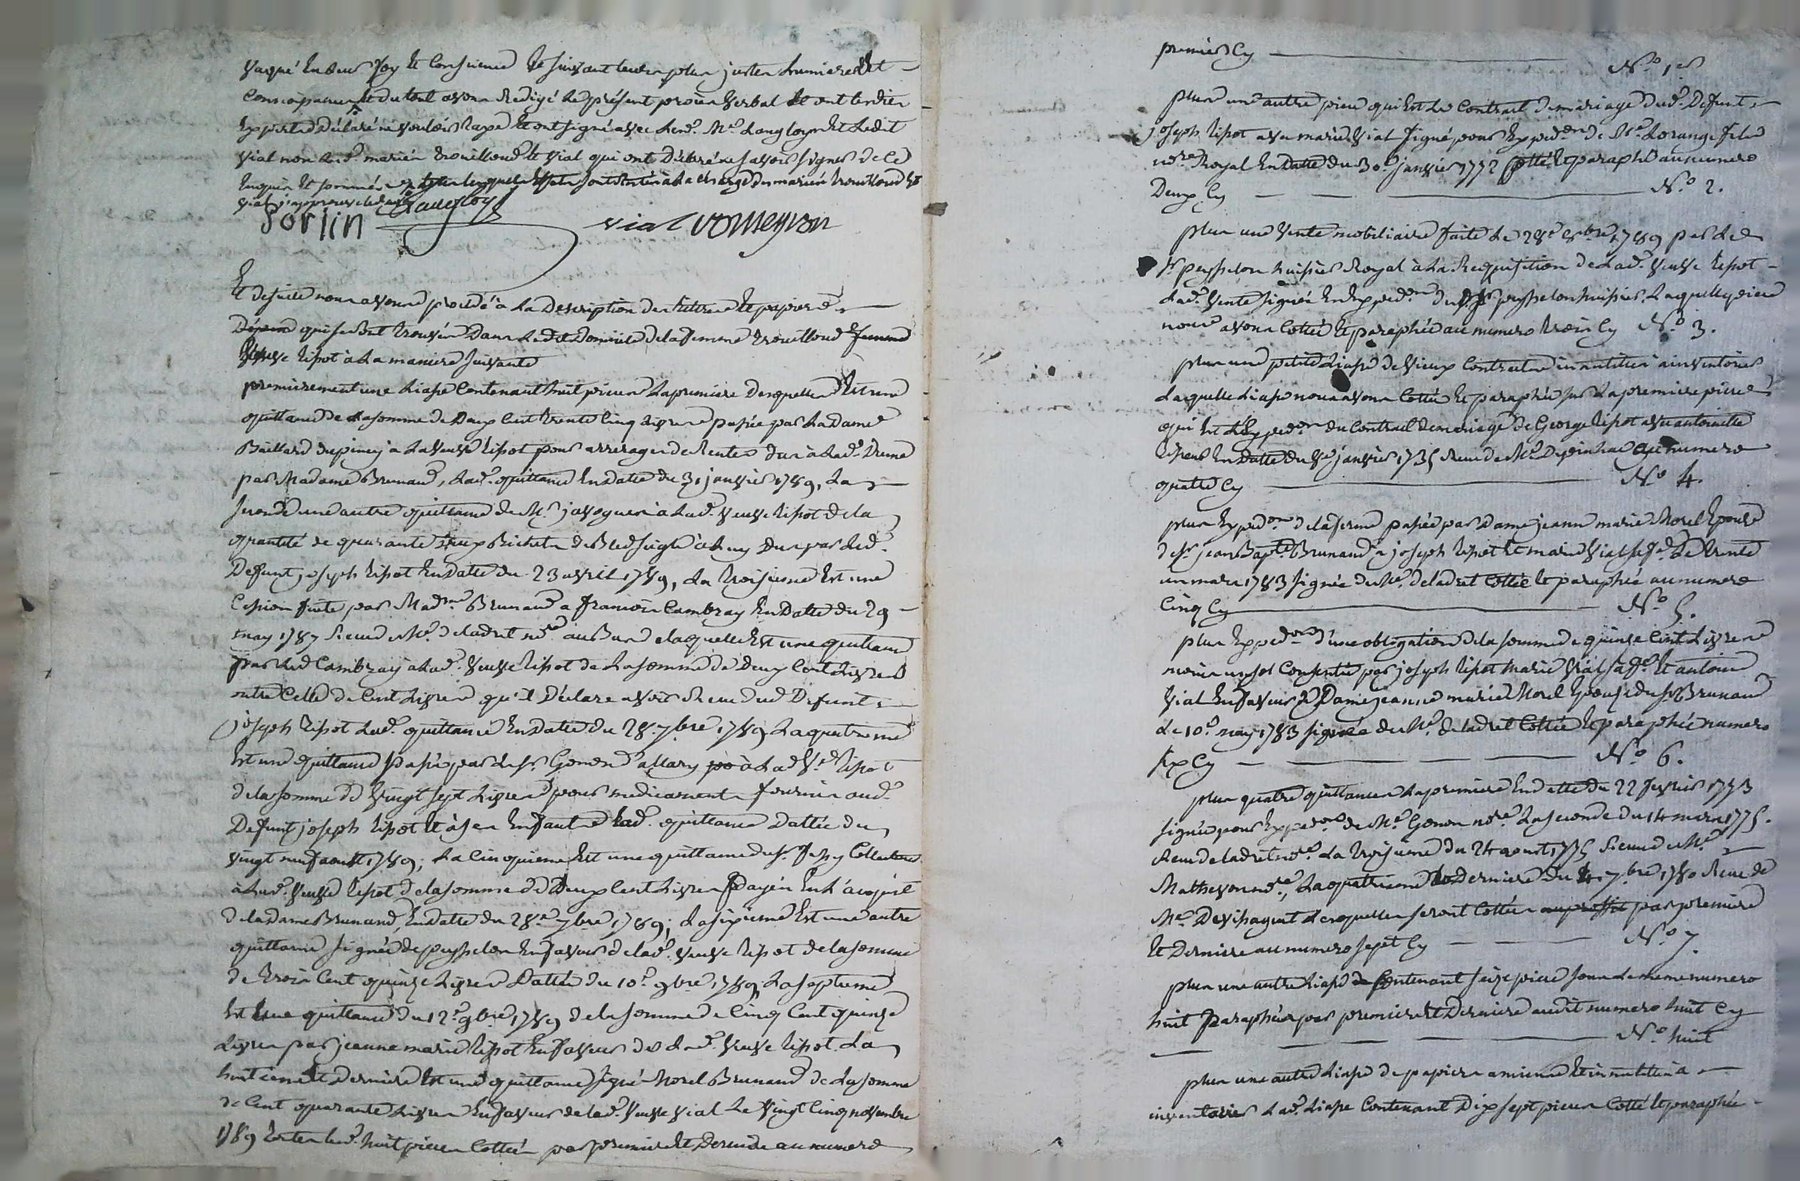 vaqué en leur foy et conscience et suivant leurs plus justes lumieres et
connoissances et du tout avons redigé le présent procès verbal et ont lesdits
experts déclaré ne vouloir taxe et ont signé avec led. Me Langloys et ledit
vial non lad. marie trouilloud et vial qui ont déclaré ne savoir signer de ce
enquis et sommés
Sorlin Langloys vial vormeyron
Et de suite nous avons procédé à la Description des titres et papiers
qui se sont trouvés dans ledit Domicile de la femme trouilloud femme
veuve tipot à la maniere suivante
premierement une liasse contenant huit pieces la premiere desquelles est une
quittance de la somme de Deux Cent trente Cinq livres passée par la Dame
Baillard dupinay a la veuve tipot pour arrerages de rentes dus à lad. Dame
par Madame Brunand, lad. quittance en datte du 31 janvier 1789, la
seconde une autre quittance de Mr javoguer à lad. veuve tipot de la
quantité de quarante deux Bichets de Bled seigle a luy dus par led.
Defunt joseph tipot en datte du 23 avril 1789, la troisieme est une
Cession faite par Made Brunand a françois Cambray en datte du 29
may 1787 recue de Me deladret nre au Bas de laquelle est une quittance
par led Cambray à lad. veuve tipot de la somme de Deux Cent livres
outre Celle de Cent livres qu'il Déclare avoir recue dud Defunt
joseph tipot lad. quittance en datte du 28 7bre 1789 La quatrieme
est une quittance passée par le sr Gonon d'allary à lad ve tipot
de la somme de vingt sept livres pour medicaments fournis aud.
Defunt joseph tipot et à ses enfants lad. quittance Dattée du
vingt neuf aoust 1789; La Cinquieme est une quittance du sr Collecteur
à lad. veuve tipot de la somme de Deux Cent livres payés en l'acquit
de la dame Brunand, en datte du 28e 7bre 1789; La sixieme est une autre
quittance signée de peysselon en faveur de lad. veuve tipot de la somme
de trois Cent quinze livres Dattée du 10e 9bre 1789, La septieme
est une quittance du 12e 9bre 1789 de la somme de Cinq Cent quinze
livres par jeanne marie tipot en faveur de lad. veuve tipot La
huitieme et Derniere est une quittance signé Morel Brunand de la somme
de Cent quarante livres en faveur de lad. veuve vial Le vingt Cinq novembre
1789 toutes lesd. huit pieces Cottées par premiere et Derniere au numero
premier Cy No 1er
plus une autre piece qui est Le Contrat de mariage dud. Defunt
joseph tipot avec marie vial signé pour expedon de Me Lorange fils
nore Royal en datte du 30e janvier 1772 Cotté et paraphé au numero
Deux Cy No 2.
plus une vente mobiliaire faite Le 28e 8bre 1789 par Le
sr peysselon huissier Royal à La Requisition de Lad. veuve tipot
Lad. vente signée en expedon dud sr peysselon huissier. Laquelle piece
nous avons Cottée et paraphée au numero trois Cy No 3.
plus une petite Liasse de vieux Contrats inutilles à inventorier
Laquelle Liasse nous avons Cottée et paraphée sur La premiere piece
qui est L'expedon du Contrat de mariage de George tipot avec antoinette
en Datte du janvier 1735 recu de Me au numero
quatre Cy No 4.
plus expedon de la ferme passée par dame jeanne marie Morel epouse
de sr jean Bapte Brunand à joseph tipot et marie vial sa fe Le trente
un mars 1783 signée de Me deladret Cottée et paraphée au numero
Cinq Cy No 5.
plus expedon d'une obligation de la somme de quinze Cent Livres
moins un sol Consentie par joseph tipot marie vial sa fe et antoine
vial en faveur de Dame jeanne marie Morel epouse du sr Brunand
Le 10e may 1783 signée de Me deladret Cottée et paraphée numero
six Cy No 6.
plus quatre quittances La premiere en datte du 22 fevrier 1773
signée pour expedon de Me Gonon nre. La seconde du 14 mars 1775.
recue deladret nre. La troisieme du 24 aoust 1775 recue de Me
Mathevon nre, La quatrieme et Derniere du 7bre 1780 recue de
Me Devihagent Lesquelles seront Cottées par premiere
et Derniere au numero sept Cy No 7.
plus une autre Liasse Contenant seize pieces sous Le meme numero
huit Paraphées par premiere et Derniere audit numero huit Cy
No huit
plus une autre Liasse de papiers anciens et inutiles à
inventorier Lad. Liasse Contenant Dix sept pieces Cotté et paraphée